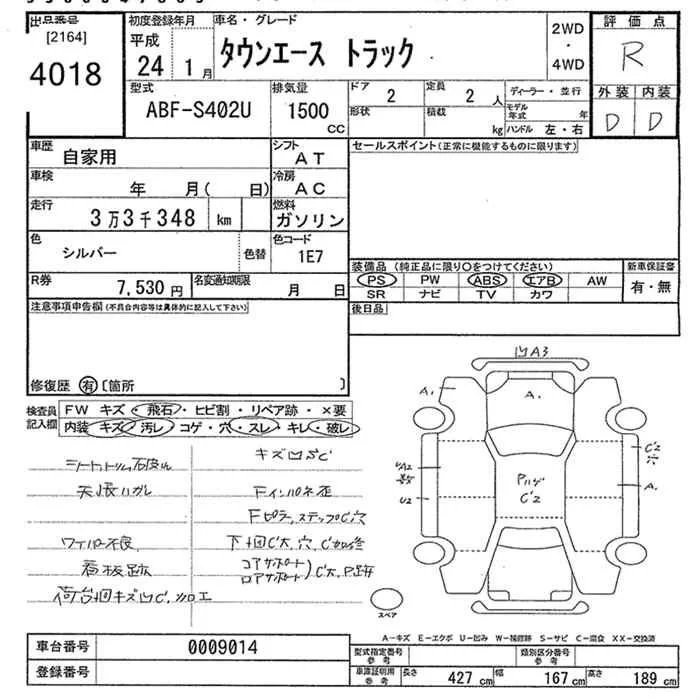 出品番号
[2164]
4018
初度登録年月
平成
24 1月
車名・グレード
タウンエース トラック
2WD
・
4WD
評価点
R
外装 内装
D D
型式
ABF-S402U
排気量
1500
CC
ドア
2
定員
2 人
形状
積載
kg
ディーラー・並行
モデル年式 年
ハンドル 左・右
車歴
自家用
シフト
AT
車検
年 月( 日)
冷房
AC
走行
3万3千348 km
燃料
ガソリン
色
シルバー
色替
色コード
1E7
R券
7,530円
名変通知期限
月 日
セールスポイント(正常に機能するものに限ります)
装備品 (純正品に限り○をつけてください)
PS PW ABS エアB AW
SR ナビ TV カワ
新車保証書
有・無
後日品
注意事項申告欄(不具合内容等は具体的に記入して下さい)
修復歴 有 〔箇所 〕
検査員
記入欄
FW キズ・飛石・ヒビ割・リペア跡・×要
内装 キズ・汚レ・コゲ・穴・スレ・キレ・破レ
天張ハガレ
ワイパー不良
看板跡
キズ凹サC
Fインパネ歪
Fピラ,ステップC穴
コアサポート
ロアサポート
凹A3
A1
A.
C2
穴
A.
Pハゲ
C2
U2
スペア
A-キズ E-エクボ U-凹み W-補修跡 S-サビ C-腐食 XX-交換済
車台番号
0009014
登録番号
型式指定番号
参考
類別区分番号
参考
車庫証明用
参考
長さ 427 cm 幅 167 cm 高さ 189 cm